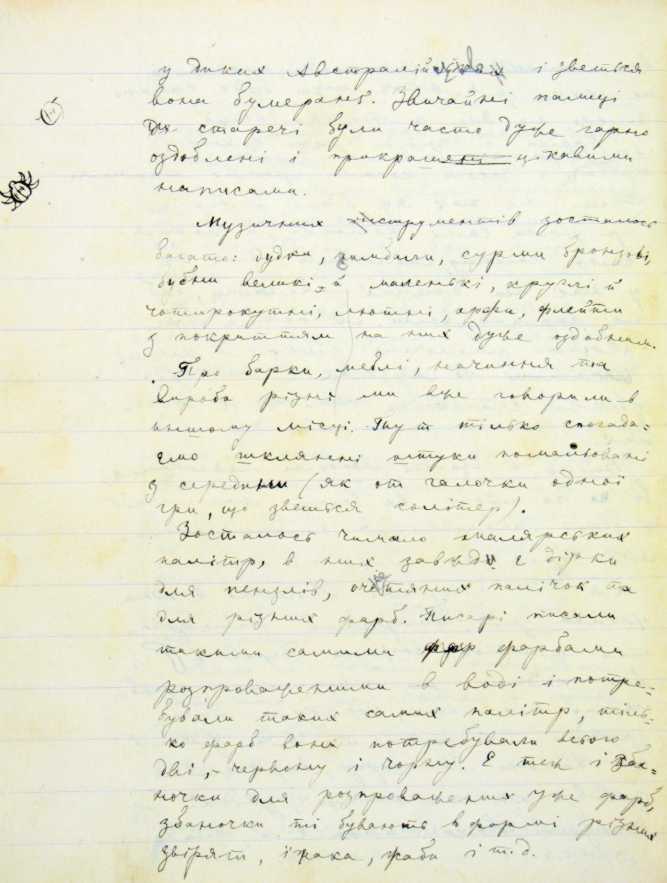 у диких Австралійців і зветься
вона бумеранг. Звичайні палиці
старечі були часто дуже гарно
оздоблені і прикрашені цікавими
написами.
Музичних інструментів зосталось
багато: дудки, цимбали, сурми бронзові,
бубни великі й маленькі, круглі й
чотирокутні, лютні, арфи, флейти
з покриттям на них дуже оздобним.
Про барки, меблі, начиння та
вироби різні ми вже говорили в
иншому місці. Тут тілько спогада-
ємо шклянні штуки помальовані
з середини (як от галочки одної
гри, що зветься солітер).
Зосталось чимало малярських
палітр, в них завжди є дірки
для пензлів, паличок та
для різних фарб. Писарі писали
такими самими фарбами
розпроваженими в воді і потре-
бували таких самих палітр, тіль-
ко фарб вони потребували всього
дві, – червону і чорну. Є теж і збан-
ночки для розпроваженних уже фарб,
збаночки ті бувають в формі різних
звірят, їжака, жаби і т.д.